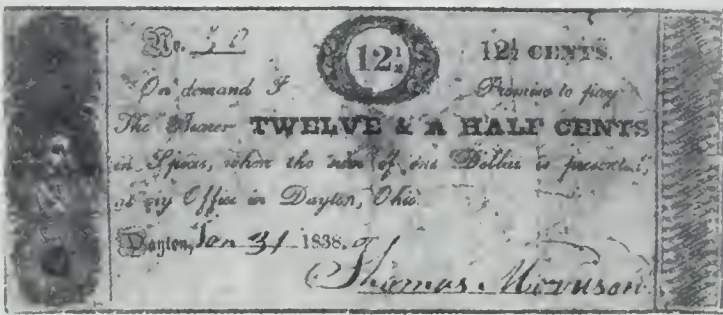 No. 30 12½ 12½ CENTS.
On demand I Promise to pay
The Bearer TWELVE & A HALF CENTS
in Specie, when the sum of one Dollar is presented,
at my Office in Dayton, Ohio.
Dayton, Jan 31 1838.
Thomas Morrison